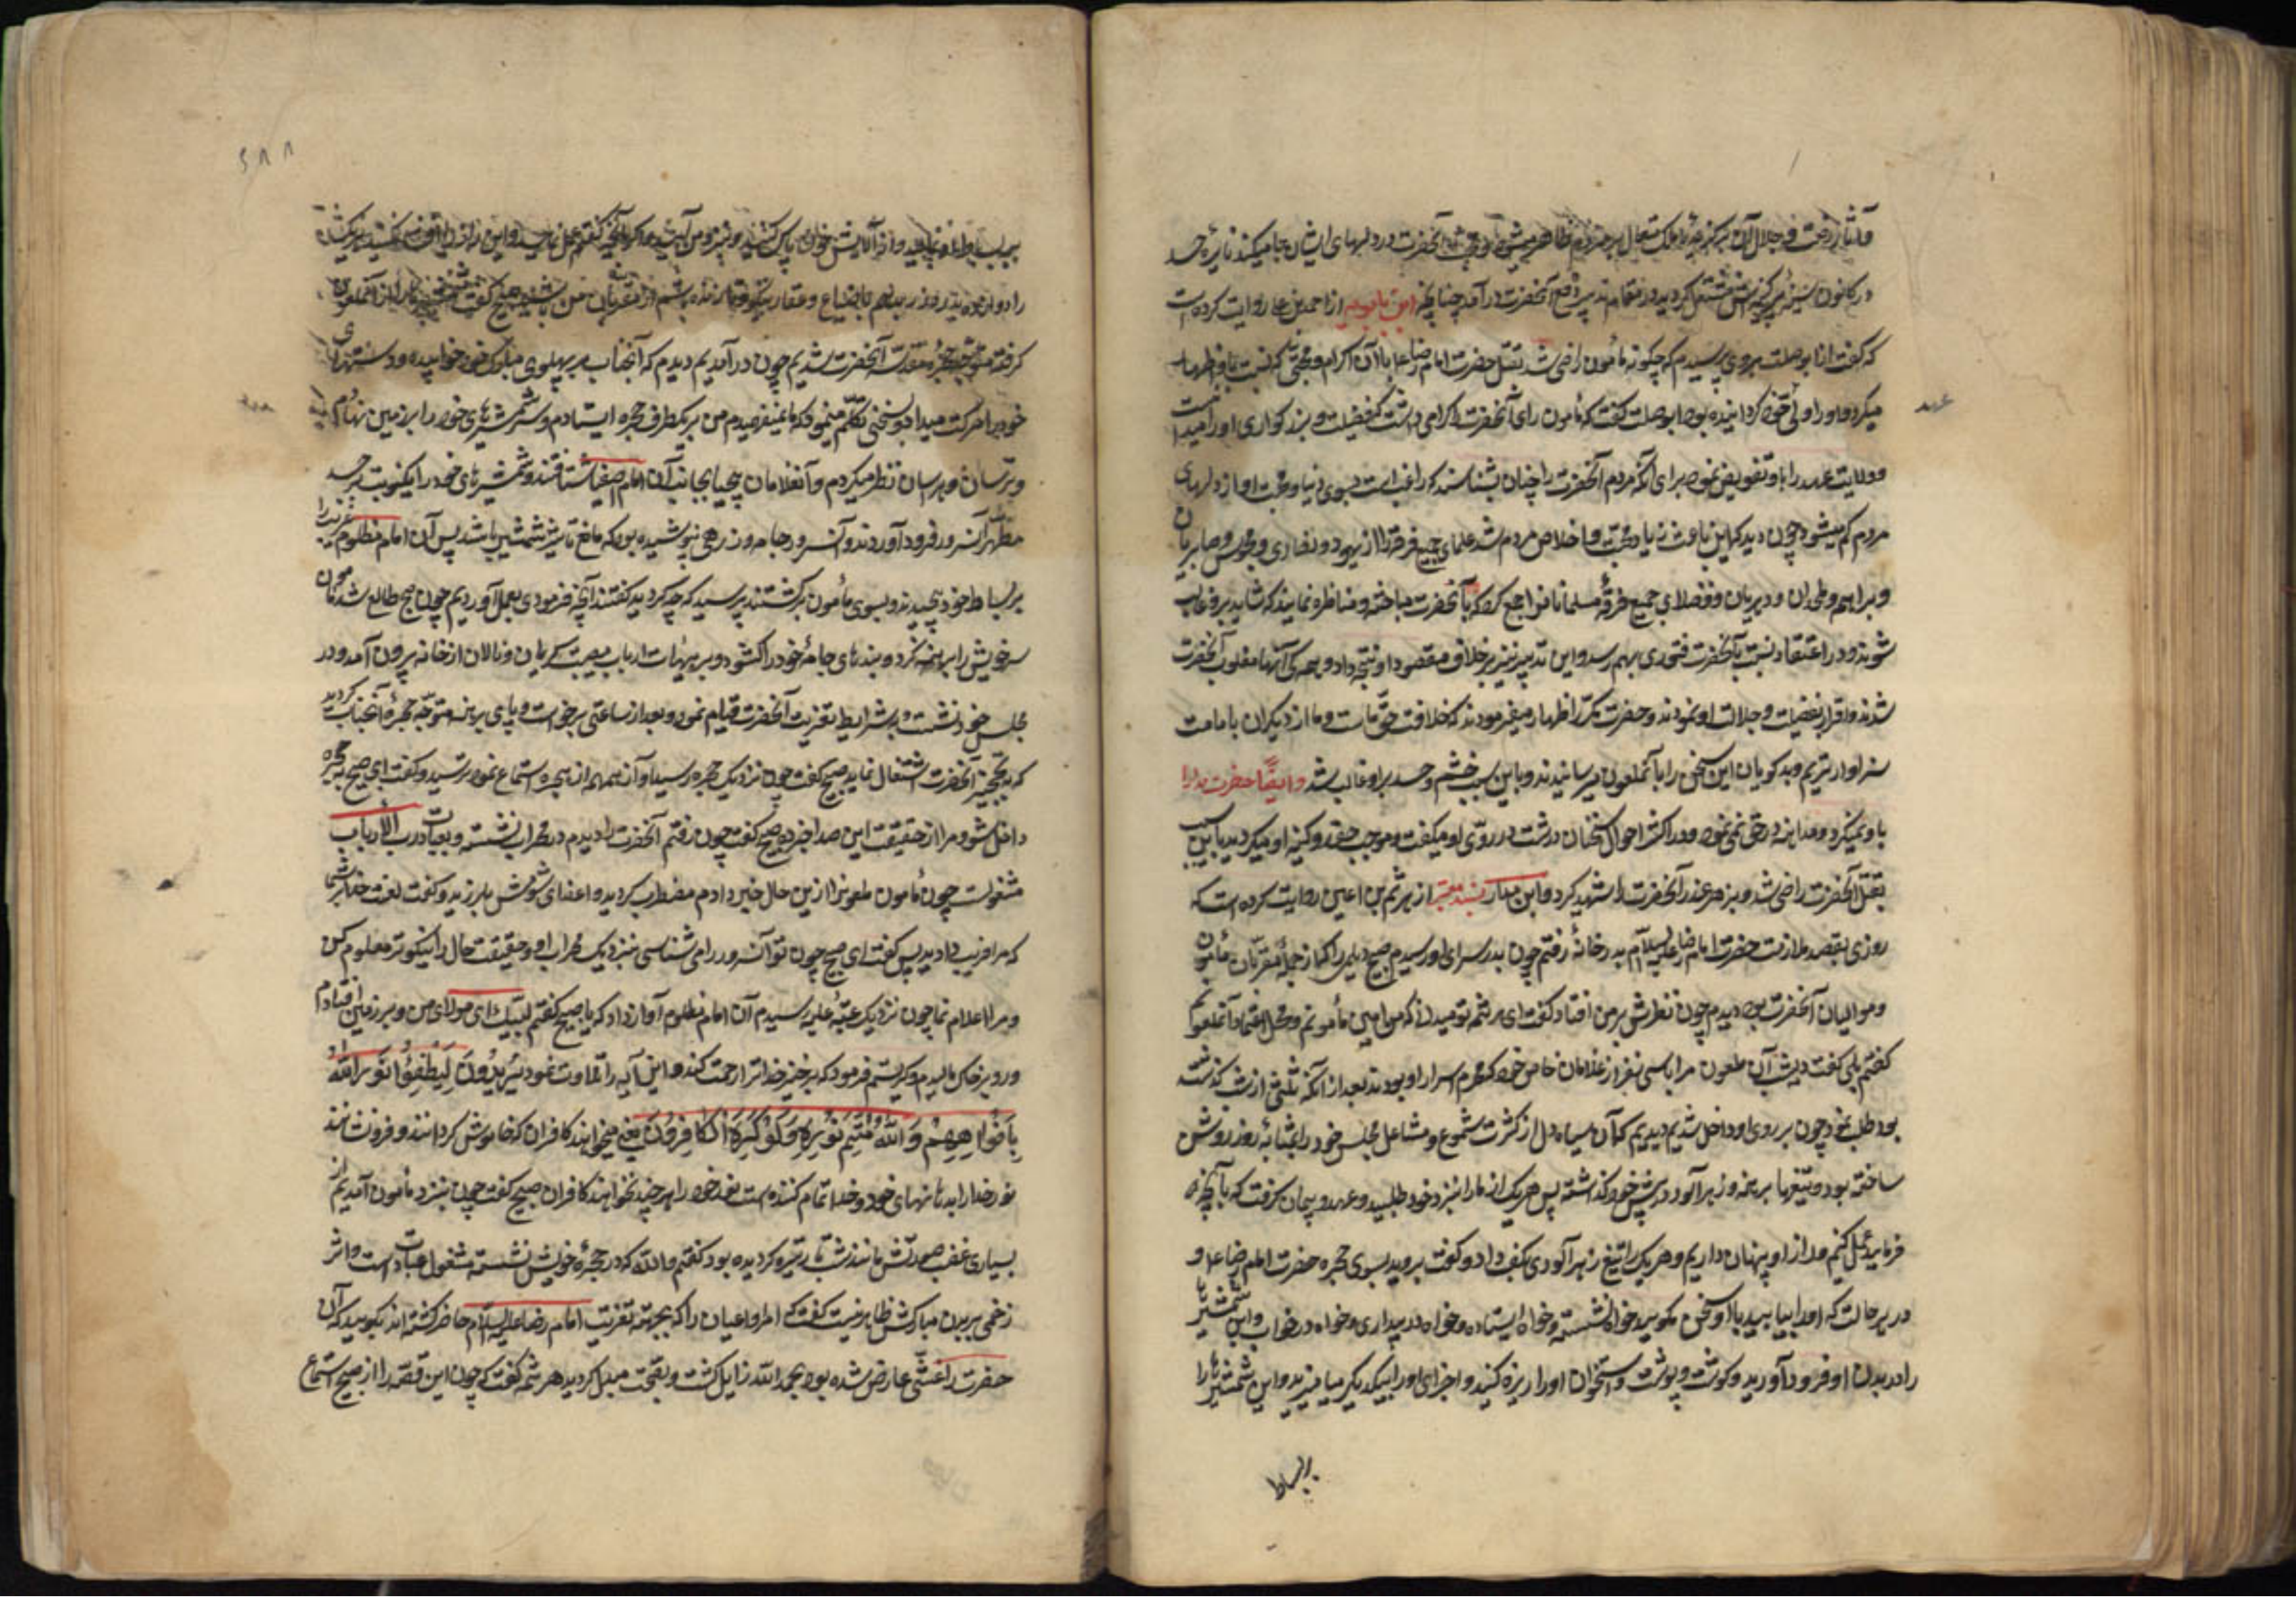 و آثار رفعت و جلال آن برگزیده ملک متعال بر مردم ظاهر میشود و محبت آنحضرت در دلهای ایشان جا میکند نایره حسد
در کانون سینه پرکینه‌اش مشتعل گردید و در مقام تدبیر دفع آنحضرت درآمد چنانچه ابن بابویه از احمد بن علی روایت کرده است
که گفت از ابوصلت هروی پرسیدم که چگونه مأمون راضی شد بقتل حضرت امام رضا ع با آن اکرام و محبتی که نسبت باو اظهار
میکرد و او را ولی عهد خود گردانیده بود ابوصلت گفت که مأمون برای آنحضرت را گرامی داشت که فضیلت و بزرگواری او را میدانست
و ولایت عهد را باو تفویض نمود برای آنکه مردم آنحضرت را چنان بشناسند که راغب است بسوی دنیا و محبت او از دلهای
مردم کم میشود چون دید که این باعث زیادتی محبت و اخلاص مردم شد علمای جمیع فرقه را از یهود و نصاری و مجوس و صابیان
و براهمه و ملحدان و دهریان و فضلای جمیع فرقهٔ مسلمانان را جمع کرد که با آنحضرت مباحثه و مناظره نمایند که شاید بر او غالب
شوند و در اعتقاد نسبت بآنحضرت فتوری بهم رسد و این تدبیر نیز بر خلاف مقصود او نتیجه داد و همگی آنها مغلوب آنحضرت
شدند و اقرار بفضیلت و جلالت او نمودند و حضرت مکرر اظهار میفرمودند که خلافت حق ماست و ما از دیگران بامامت
سزاوارتریم و بدگویان این سخن را بآن ملعون میرسانیدند و باین سبب خشم و حسد بر او غالب شد و ایضا حضرت مدارا
باو نمیکرد و مداهنه در حق نمی‌نمود و در اکثر احوال سخنان درشت در روی او میگفت و موجب حقد و کینه او میگردید باین سبب
بقتل آنحضرت راضی شد و بزهر غدر آنحضرت را شهید کرد و ابن بابویه بسند معتبر از هرثمه بن اعین روایت کرده است که
روزی بقصد ملازمت حضرت امام رضا علیه السلام بدر خانهٔ رفتم چون بدر سرای او رسیدم صبیح دیلمی را که از جملهٔ مقربان مأمون
و موالیان آنحضرت بود دیدم چون نظرش بر من افتاد گفت ای هرثمه تو میدانی که من امین مأمونم و محل اعتماد آن ملعونم
گفتم بلی گفت دیشب آن ملعون مرا با سی نفر از غلامان خاص خود که محرم اسرار او بودند بعد از آنکه ثلثی از شب گذشته
بود طلب نمود چون بر روی او داخل شدیم دیدیم که آن سیاه دل از کثرت شموع و مشاعل مجلس خود را بمثابهٔ روز روشن
ساخته بود و تیغها برهنه و زهرآلود در پیش خود گذاشته پس هر یک از ما را نزد خود طلبید و عهد و پیمان گرفت که بآنچه
فرماید عمل کنیم و راز او پنهان داریم و هر یک را تیغ زهرآلودی بکف داد و گفت بروید بسوی حجره حضرت امام رضا ع و
در هر حالت که او را بیابید با او سخن مگویید خواه نشسته و خواه ایستاده و خواه در بیداری و خواه در خواب و این شمشیرها
را در بدن او فرود آورید و گوشت و پوست و استخوان او را ریزه کنید و اجزای او را بیکدیگر بیامیزید و این شمشیرها را
بر بساط
۵۸۸
بر بساط او بمالید و از آلایش خون پاک کنید و نزد من آیید و اگر بآنچه گفتم عمل نمایید و این راز را افشا نکنید هر یک شما
را دوازده بدره زر بدهم با ضیاع و عقار نیکو و تا زنده باشم از مقربان من باشید صبیح گفت که شمشیرها را از آن ملعون
گرفته متوجه حجرهٔ مقدسه آنحضرت شدیم چون درآمدیم دیدم که آنجناب بر پهلوی مبارک خود خوابیده و دستهای
خود را حرکت میداد و سخنی تکلم مینمود که ما نمیفهمیدیم من بر یکطرف حجره ایستادم و شمشیرهای خود را بر زمین نهادم
و ترسان و هراسان نظر میکردم و آن غلامان بیحیا بجانب آن امام اصفیا شتافتند و شمشیرهای خود را یکنوبت بر جسد
مطهر آن سرور فرود آوردند و آن سرور جامه و زرهی نپوشیده بود که مانع تاثیر شمشیر باشد پس آن امام مظلوم غریب را
بر بساط خود پیچیدند و بسوی مأمون برگشتند پرسید که چه کردید گفتند آنچه فرمودی بعمل آوردیم چون صبح طالع شد مأمون
سر خویش را برهنه کرد و بندهای جامهٔ خود را گشود و بر هیئات ارباب مصیبت گریان و نالان از خانه بیرون آمد و در
مجلس خود نشست و بشرایط تعزیت آنحضرت قیام نمود و بعد از ساعتی برخواست و پای برهنه متوجه حجرهٔ آنجناب گردید
که بتجهیز آنحضرت اشتغال نماید صبیح گفت چون نزدیک حجره رسید او آن همهمه از حجره استماع نمود و ترسید و گفت ای صبیح به حجره
داخل شو و مرا از حقیقت این صدا خبر ده صبیح گفت چون رفتم آنحضرت را دیدم در محراب نشسته و بعبادت رب الارباب
مشغولست چون مأمون ملعون را ازین حال خبر دادم مضطرب گردید و اعضای شومش بلرزید و گفت لعنت خدا بر شما
که مرا فریب دادید پس گفت ای صبیح چون تو آن سرور را می‌شناسی نزدیک محراب او رو حقیقت حال را نیکوتر معلوم کن
و مرا اعلام نما چون نزدیک عتبهٔ علیه رسیدم آن امام مظلوم آواز داد که یا صبیح گفتم لبیک ای مولای من و بر زمین افتادم
و روی بر خاک مالیدم و گریستم فرمود که برخیز خدا ترا رحمت کند و این آیه را تلاوت نمود یُرِیدُونَ لِیُطْفِئُوا نُورَ اللَّهِ
بِأَفْوَاهِهِمْ وَاللَّهُ مُتِمُّ نُورِهِ وَلَوْ کَرِهَ الْکَافِرُونَ یعنی میخواهند کافران که خاموش گردانند و فرونشانند
نور خدا را بدهانهای خود و خدا تمام کننده است نور خود را هر چند نخواهند کافران صبیح گفت چون نزد مأمون آمدیم از
بسیاری غضب صورتش مانند شب تار تیره گردیده بود گفتم والله که در حجرهٔ خویش نشسته مشغول عبادتست و اثر
زخمی بر بدن مبارکش ظاهر نیست گفت که امرا و اعیان را که بجهة تعزیت امام رضا علیه السلام حاضر گشته‌اند بگویید که آن
حضرت را غشی عارض شده بود بحمد الله زایل گشت و بصحت مبدل گردید هرثمه گفت که چون این قصه را از صبیح استماع